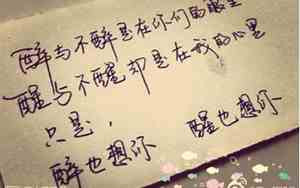 醉与不醉是在你们的眼里
醒与不醒却是在我的心里
只是，
醉也想你 醒也想你